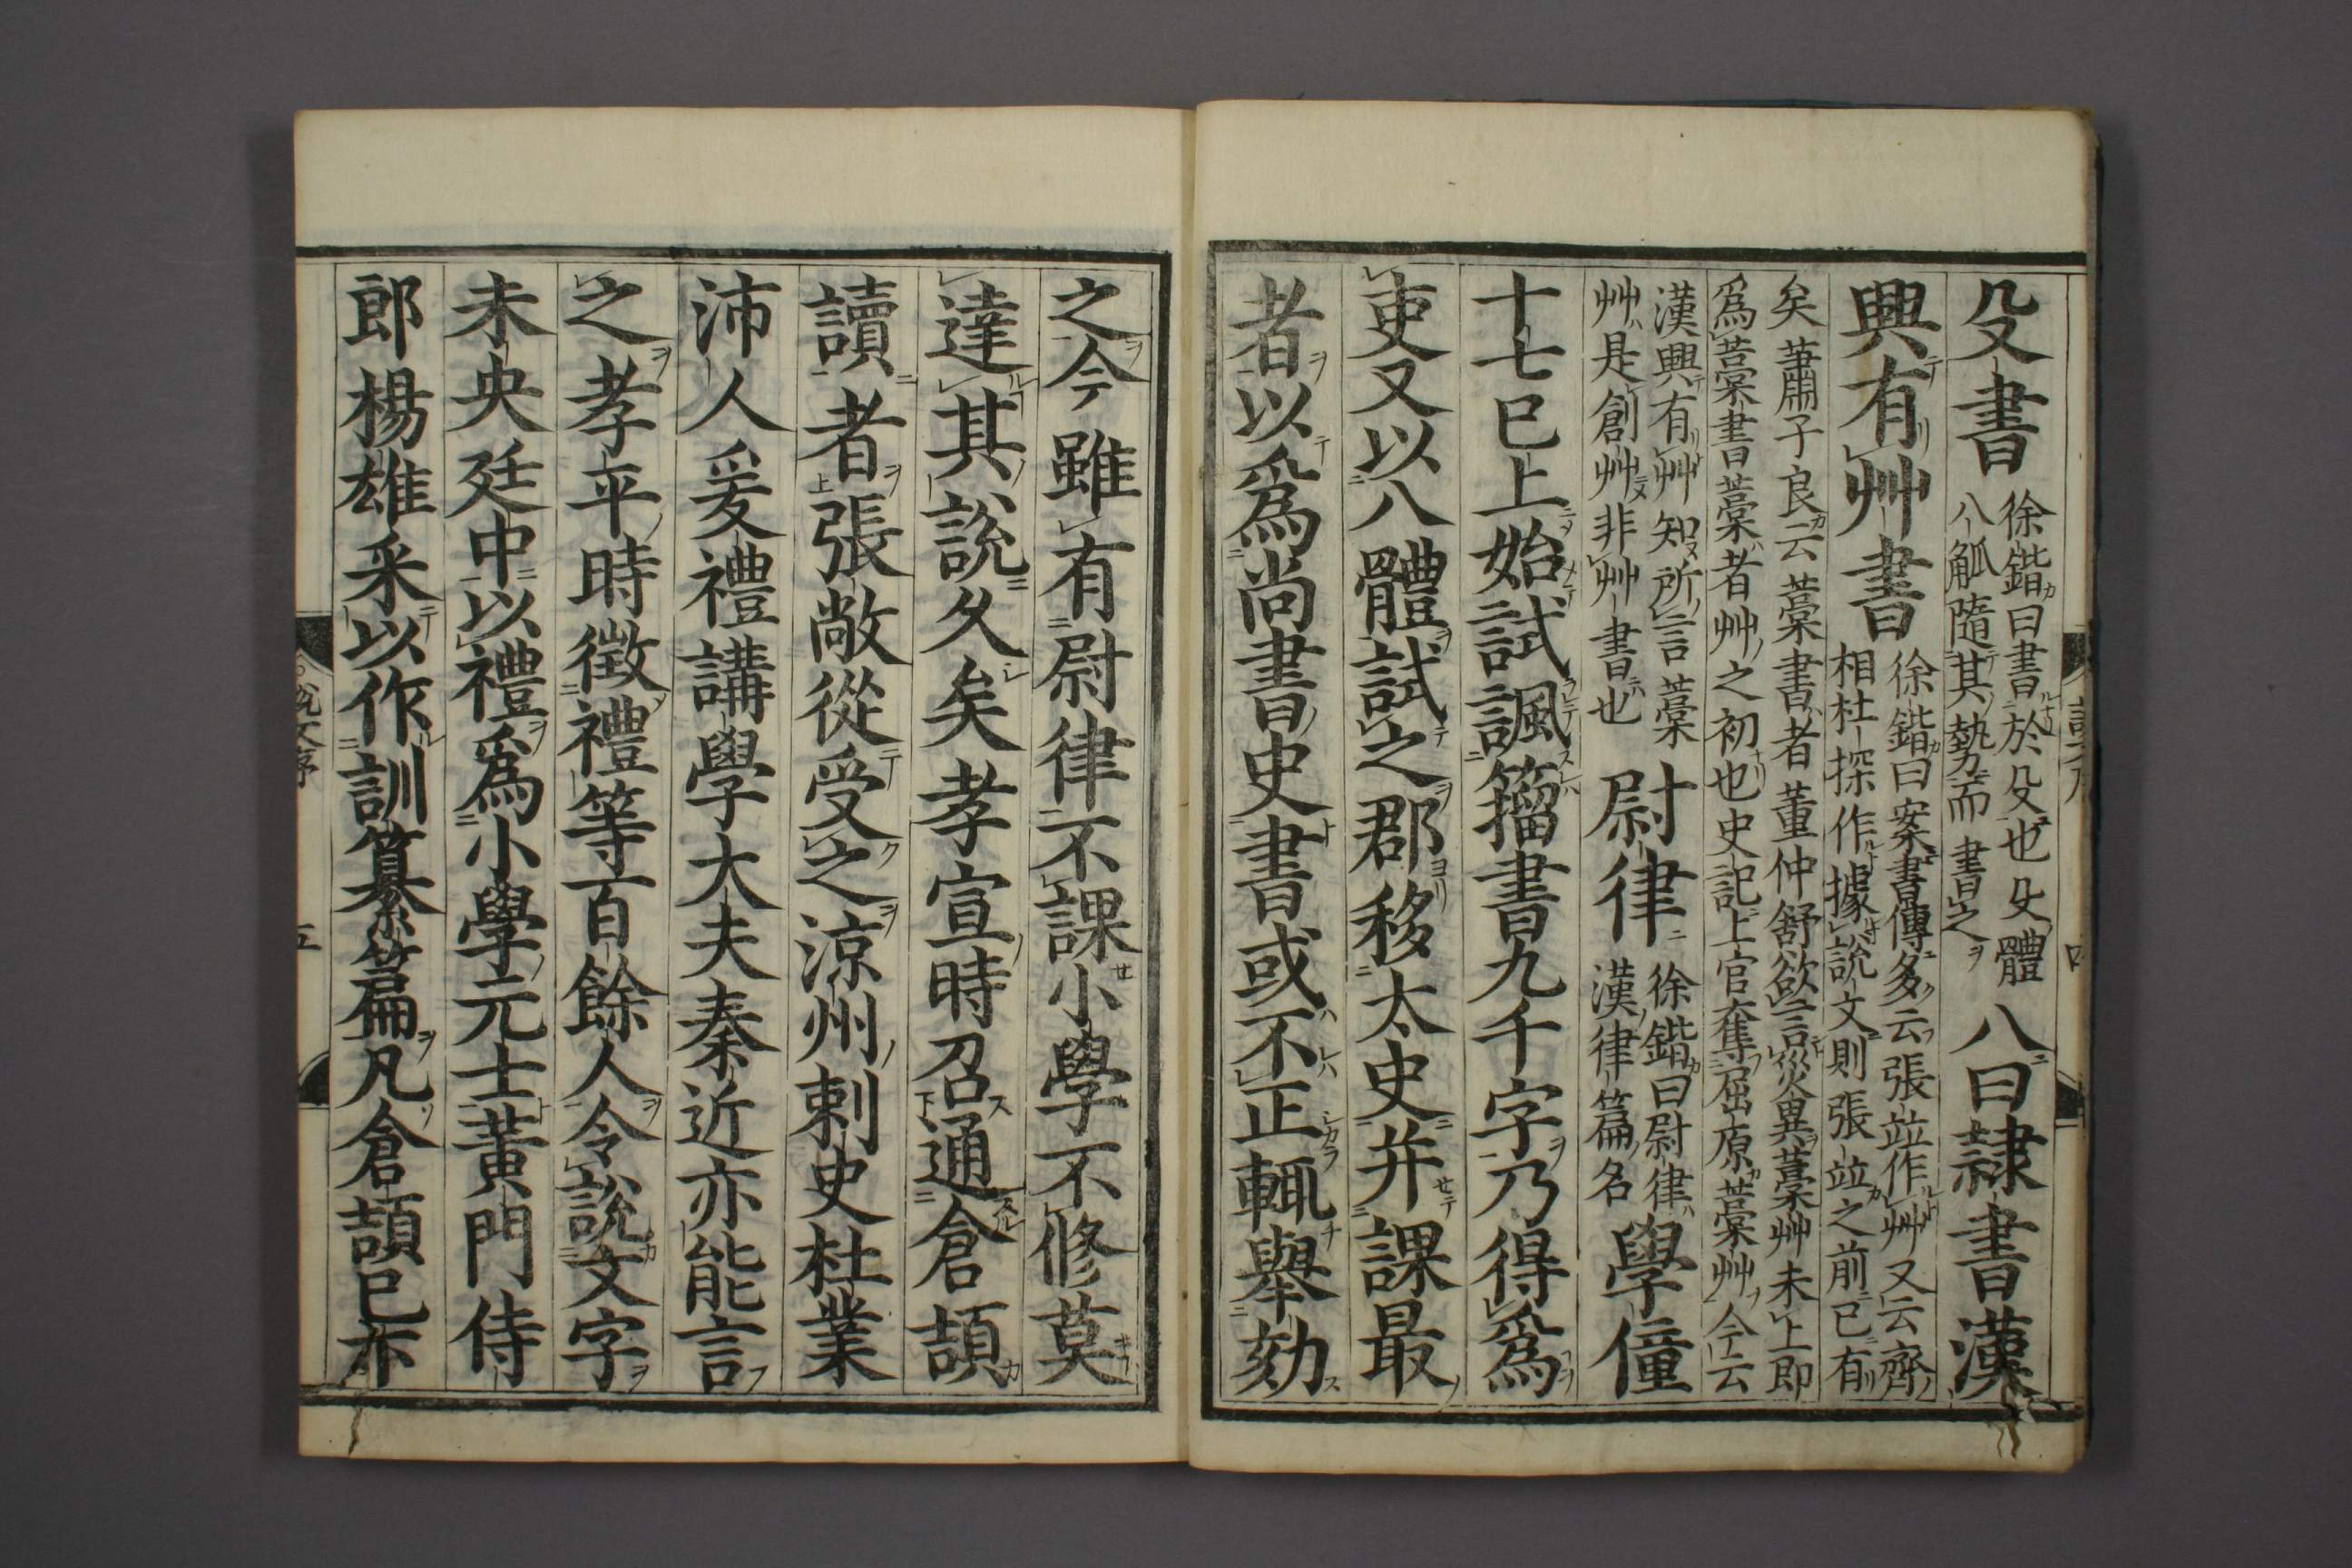 殳書徐鍇曰書於殳也殳體八觚隨其勢而書之八曰隸書漢
興有艸書徐鍇曰案書傳多云張竝作艸又云齊相杜探作據說文則張竝之前已有
矣蕭子良云藁書者董仲舒欲言災異藁艸未上即爲藁書藁者艸之初也史記上官奪屈原藁艸今云
漢興有艸知所言藁艸是創艸非艸書也尉律徐鍇曰尉律漢律篇名學僮
十七已上始試諷籀書九千字乃得爲
吏又以八體試之郡移太史并課最
者以爲尚書史書或不正輒舉劾
之今雖有尉律不課小學不修莫
達其說久矣孝宣時召通倉頡
讀者張敞從受之涼州刺史杜業
沛人爰禮講學大夫秦近亦能言
之孝平時徵禮等百餘人令說文字
未央廷中以禮爲小學元士黃門侍
郎楊雄采以作訓纂篇凡倉頡已亦
說文序
五